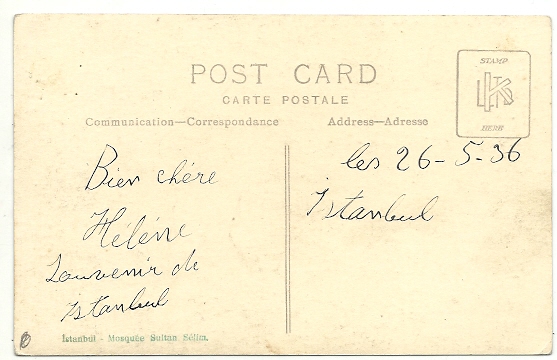 POST CARD
CARTE POSTALE
Communication—Correspondance
Address—Adresse
STAMP
HERE
les 26-5-36
Istanbul
Bien chére
Héléne
Souvenir de
Istanbul
İstanbul - Mosquée Sultan Sélim.